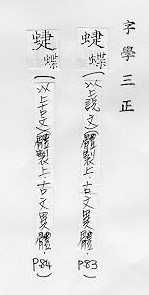 字學三正
䗖蝶(以上說文)(體製上·古文異體·P83)
䗖蝶(以上占文)(體製上·古文異體·P84)